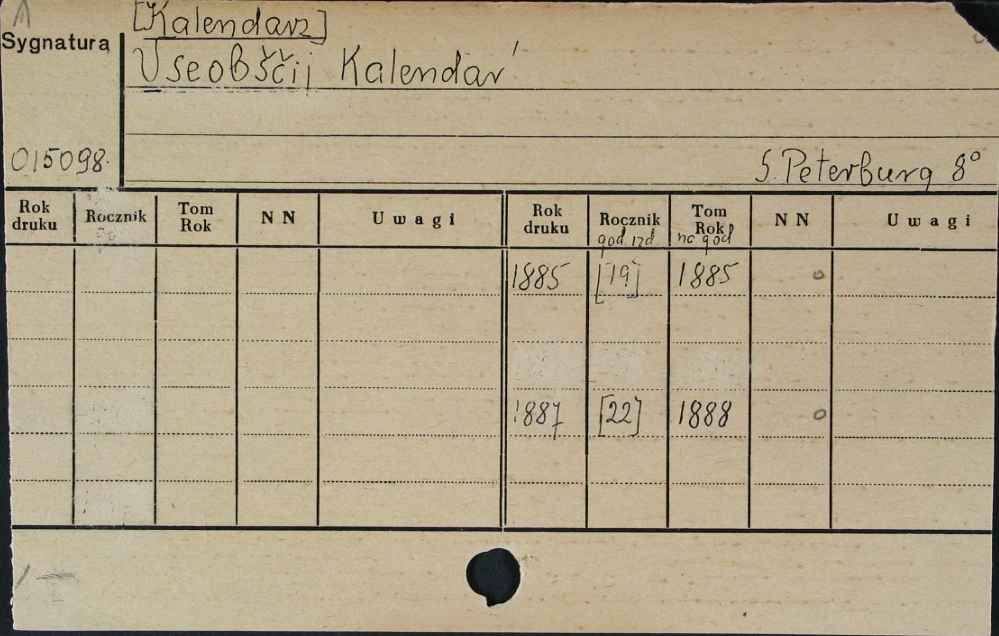 [Kalendarz]
Sygnatura
Vseobščij Kalendar'
015098.
S. Peterburg 8°
Rok druku Rocznik Tom Rok NN Uwagi Rok druku Rocznik god izd. Tom Rok na god NN Uwagi
1885 [19] 1885 o
1887 [22] 1888 o